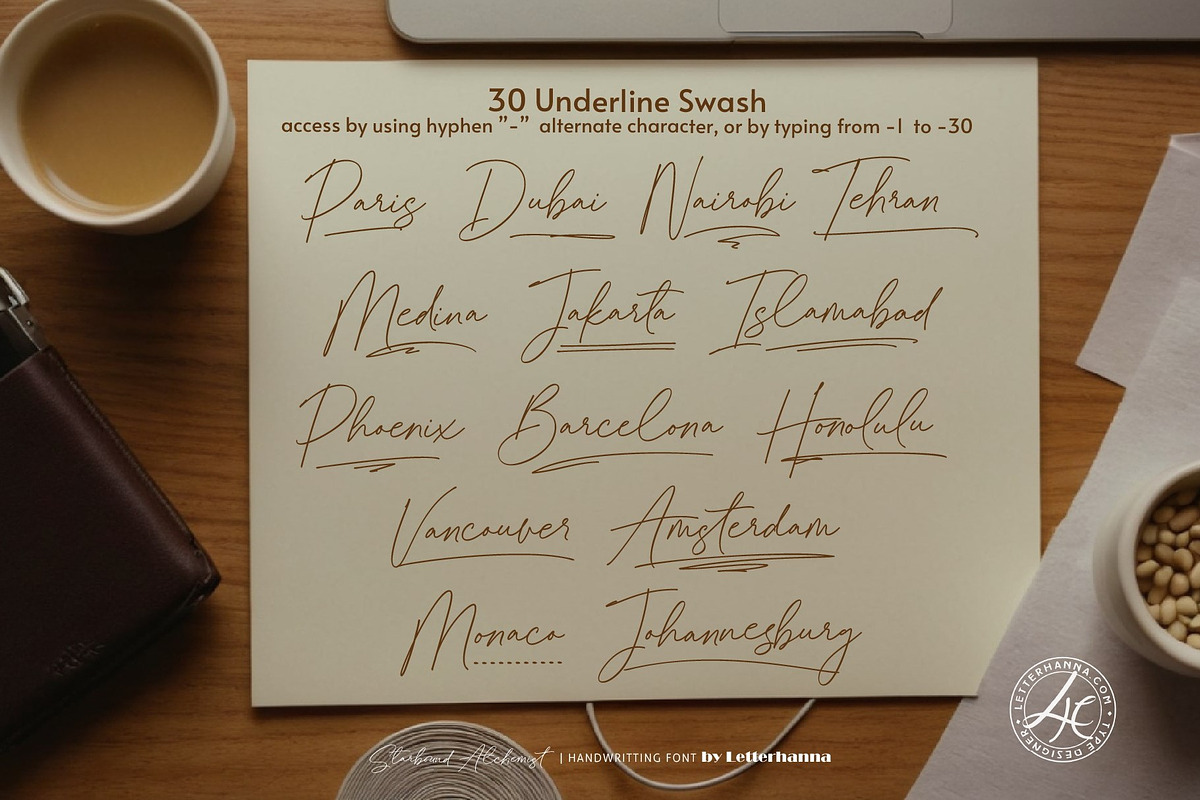 30 Underline Swash
access by using hyphen ”-” alternate character, or by typing from -1 to -30
Paris Dubai Nairobi Tehran
Medina Jakarta Islamabad
Phoenix Barcelona Honolulu
Vancouver Amsterdam
Monaco Johannesburg
Starbound Alchemist | HANDWRITTING FONT by Letterhanna
LETTERHANNA.COM
TYPE DESIGNER